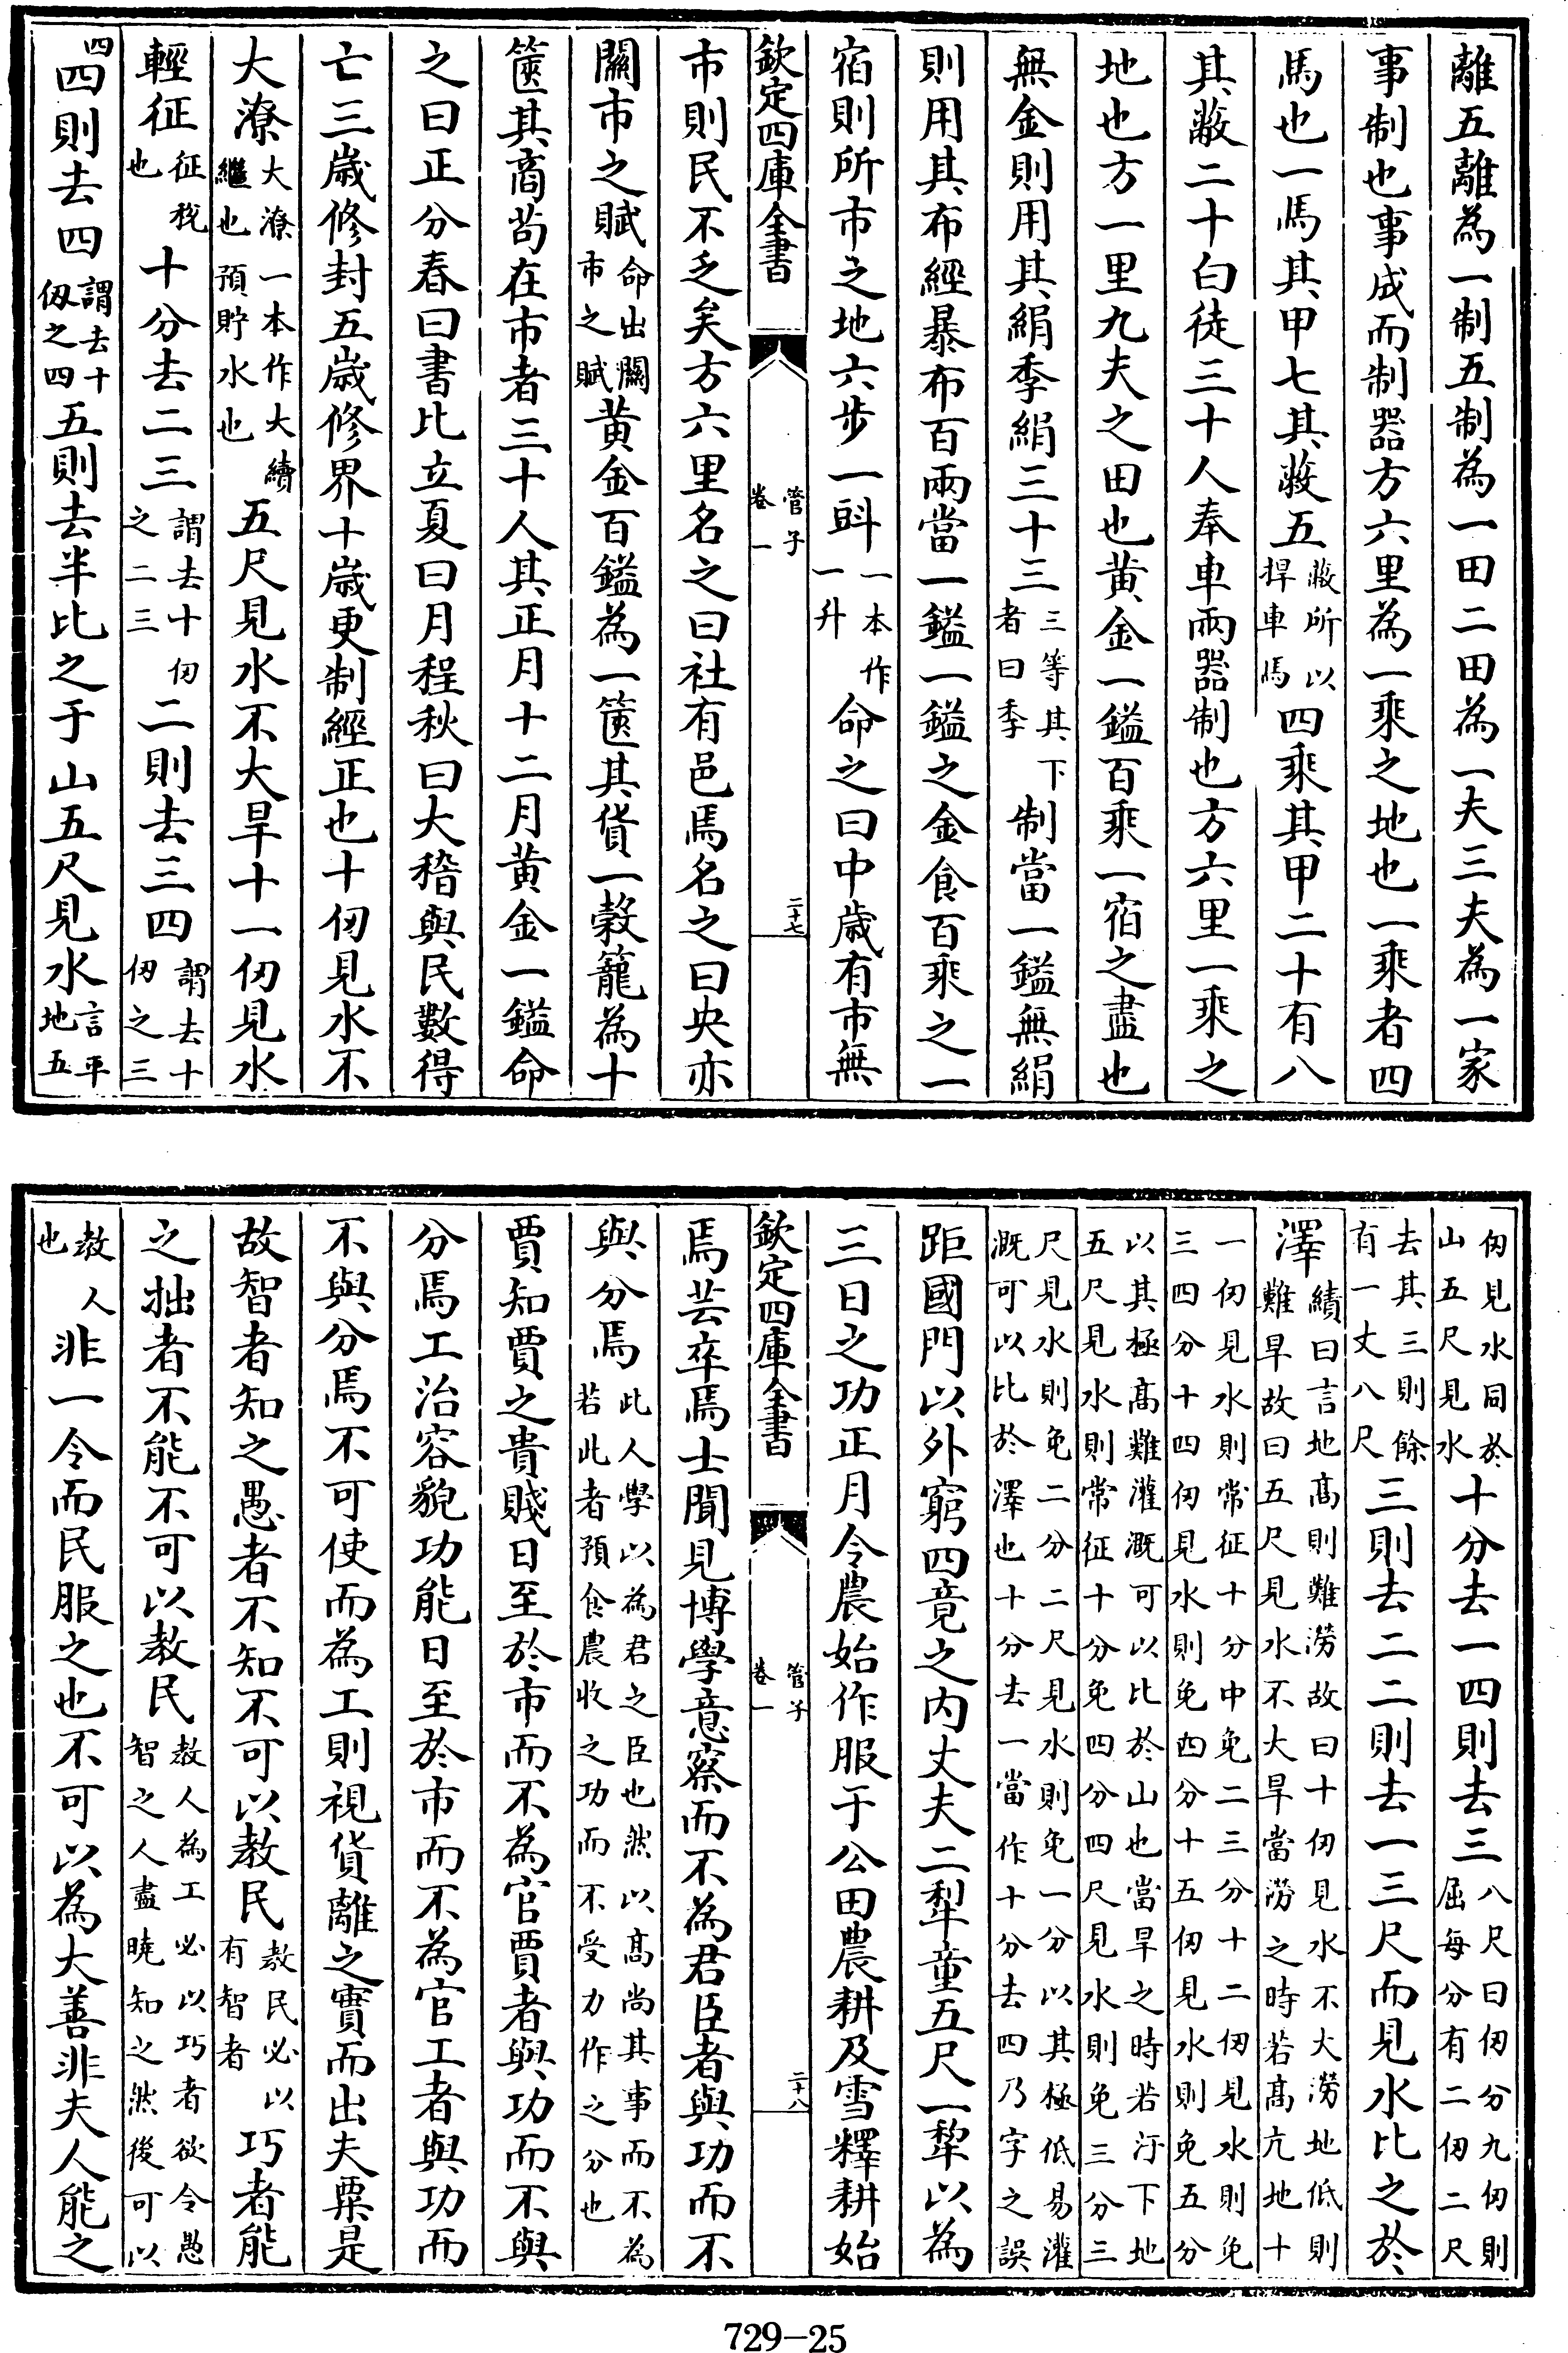 離五離為一制五制為一田二田為一夫三夫為一家
事制也事成而制器方六里為一乗之地也一乗者四
馬也一馬其甲七其蔽五蔽所以捍車馬四乗其甲二十有八
其蔽二十白徒三十人奉車兩器制也方六里一乗之
地也方一里九夫之田也黄金一鎰百乗一宿之盡也
無金則用其絹季絹三十三三等其下者曰季制當一鎰無絹
則用其布經暴布百兩當一鎰一鎰之金食百乗之一
宿則所市之地六步一㪷一本作一升命之曰中嵗有市無
欽定四庫全書
管子
卷一
二十七
市則民不乏矣方六里名之曰社有邑焉名之曰央亦
關市之賦命出關市之賦黄金百鎰為一篋其貨一穀籠為十
篋其商茍在市者三十人其正月十二月黄金一鎰命
之曰正分春曰書比立夏曰月程秋曰大稽與民數得
亡三嵗修封五嵗修界十嵗更制經正也十仞見水不
大潦大潦一本作大續繼也預貯水也五尺見水不大旱十一仞見水
輕征征税也十分去二三謂去十仞之二三二則去三四謂去十仞之三
四四則去四謂去十仞之四五則去半比之于山五尺見水言平地五
仞見水同於山五尺見水十分去一四則去三八尺曰仞分九仞則屈每分有二仞二尺
去其三則餘有一丈八尺三則去二二則去一三尺而見水比之於
澤績曰言地髙則難澇故曰十仞見水不大澇地低則難旱故曰五尺見水不大旱當澇之時若髙亢地十
一仞見水則常征十分中免二三分十二仞見水則免三四分十四仞見水則免四分十五仞見水則免五分
以其極髙難灌溉可以比於山也當旱之時若汙下地五尺見水則常征十分免四分四尺見水則免三分三
尺見水則免二分二尺見水則免一分以其極低易灌溉可以比於澤也十分去一當作十分去四乃字之誤
距國門以外窮四竟之内丈夫二犁童五尺一犂以為
三日之功正月令農始作服于公田農耕及雪釋耕始
欽定四庫全書
管子
卷一
二十八
焉芸卒焉士聞見博學意察而不為君臣者與功而不
與分焉此人學以為君之臣也然以髙尚其事而不為若此者預食農收之功而不受力作之分也
賈知賈之貴賤日至於市而不為官賈者與功而不與
分焉工治容貌功能日至於市而不為官工者與功而
不與分焉不可使而為工則視貨離之實而出夫粟是
故智者知之愚者不知不可以教民教民必以有智者巧者能
之拙者不能不可以教民教人為工必以巧者欲令愚智之人盡曉知之然後可以
教人也非一令而民服之也不可以為大善非夫人能之
729-25